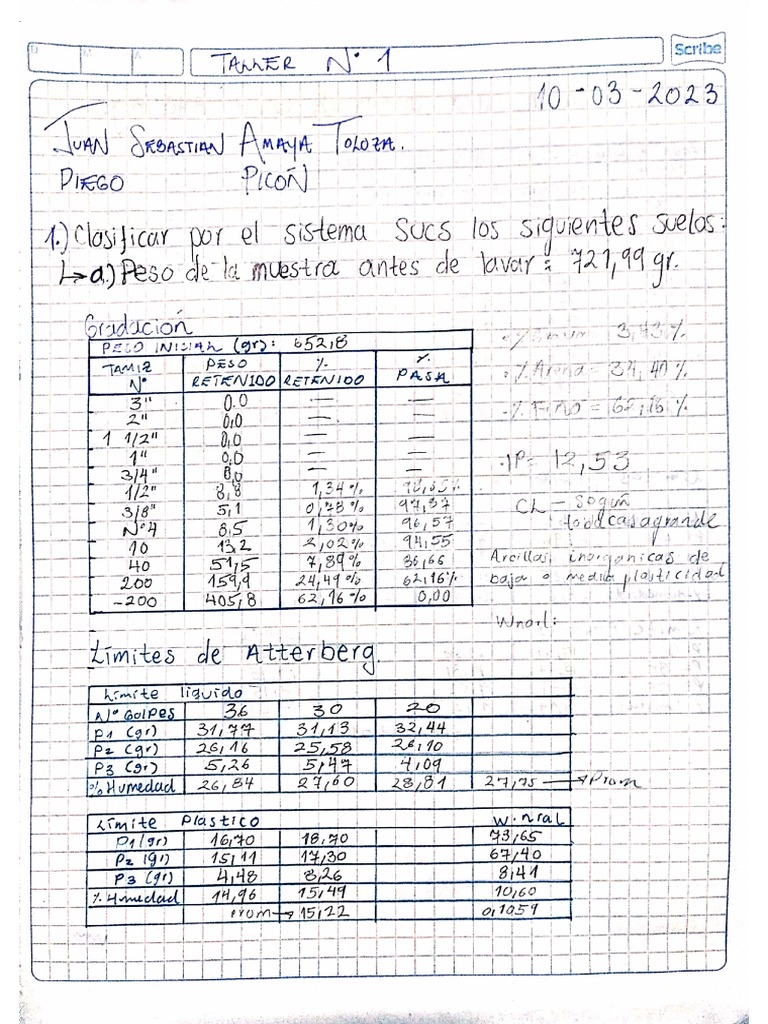 Scribe
TALLER N° 1
10-03-2023
JUAN SEBASTIAN AMAYA TOLOZA.
DIEGO PICON
1.) Clasificar por el sistema SUCS los siguientes suelos:
↳ a.) Peso de la muestra antes de lavar: 721,99 gr.
Gradación
PESO INICIAL (gr): 652,8
TAMIZ N° PESO RETENIDO % RETENIDO % PASA
3" 0.0 — —
2" 0,0 — —
1 1/2" 0,0 — —
1" 0,0 — —
3/4" 0,0 — —
1/2" 8,8 1,34%
3/8" 5,1 0,78% 97,87
N°4 8,5 1,30% 96,57
10 13,2 2,02% 94,55
40 51,5 7,89% 86,66
200 159,9 24,49% 62,16%
-200 405,8 62,16% 0,00
3,43%
% Arena = 34,40%
% Fino = 62,16%
IP = 12,53
CL - Según
casagrande
Arcillas inorganicas de
baja o media plasticidad
Wnarl:
Límites de Atterberg.
Límite líquido
N° Golpes 36 30 20
P1 (gr) 31,77 31,13 32,44
P2 (gr) 26,16 25,58 26,10
P3 (gr) 5,26 5,47 4,09
% Humedad 26,84 27,60 28,81 27,75 → Prom
Límite Plastico W.nral
P1 (gr) 16,70 18,70 73,65
P2 (gr) 15,11 17,30 67,40
P3 (gr) 4,48 8,26 8,41
% Humedad 14,96 15,49 10,60
Prom → 15,22 0,1059